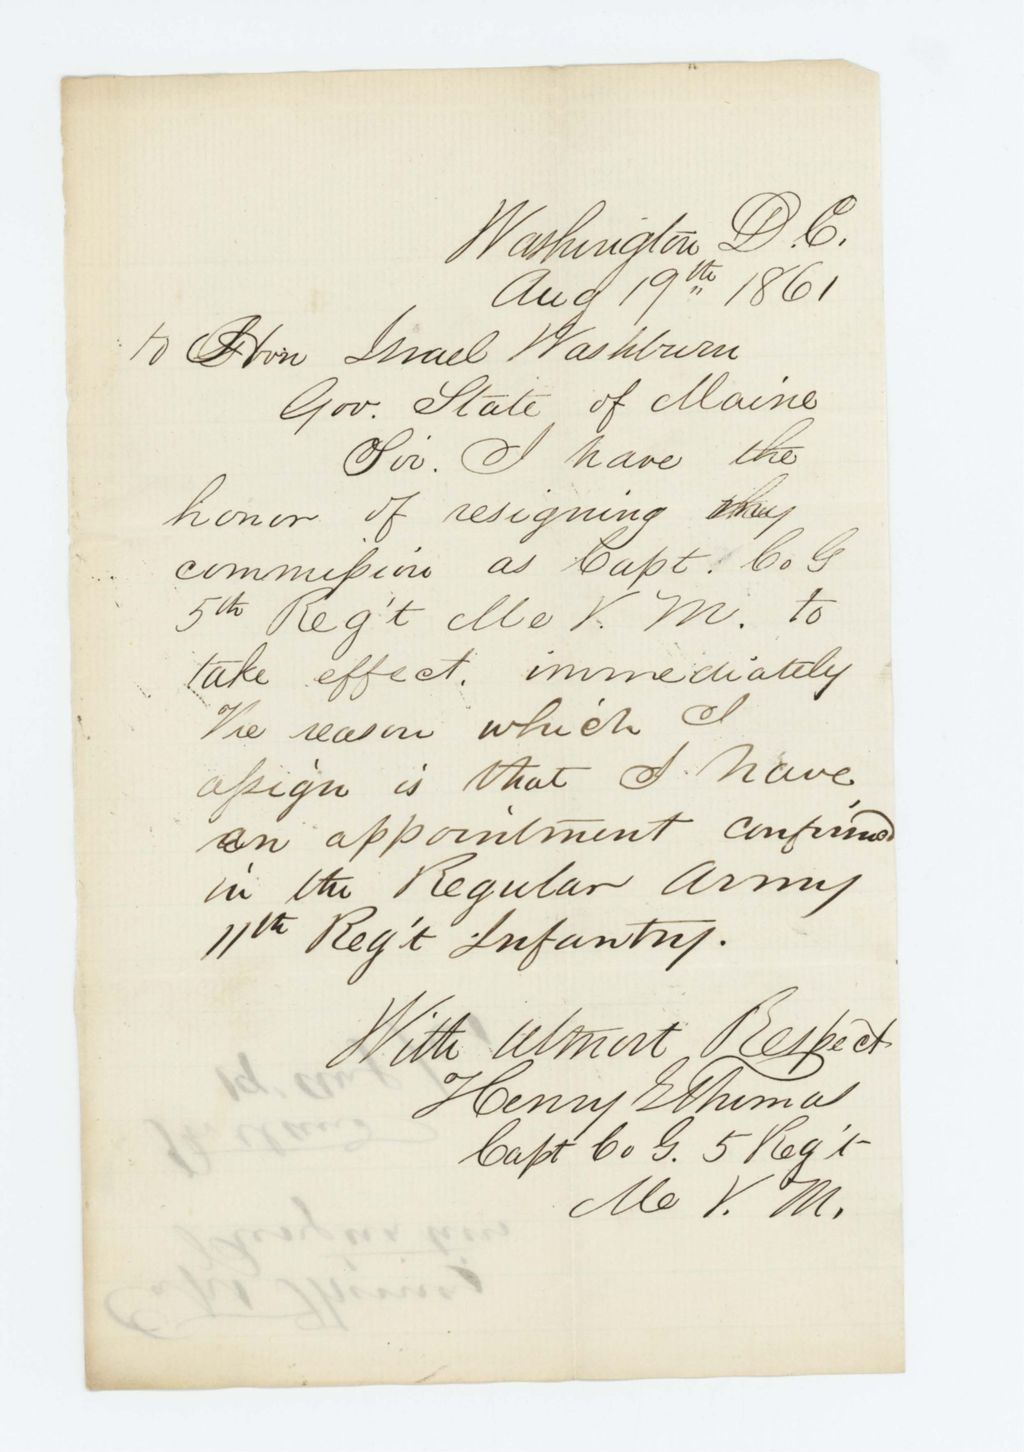 Washington D.C.
Aug 19th 1861
to Hon Israel Washburn
Gov. State of Maine
Sir. I have the
honor of resigning my
commission as Capt. Co G
5th Reg't Me V. M. to
take effect. immediately
The reason which I
assign is that I have
an appointment confirmed
in the Regular Army
11th Reg't Infantry.
With Utmost Respect
Henry G Thomas
Capt Co G. 5 Reg't
Me V. M.